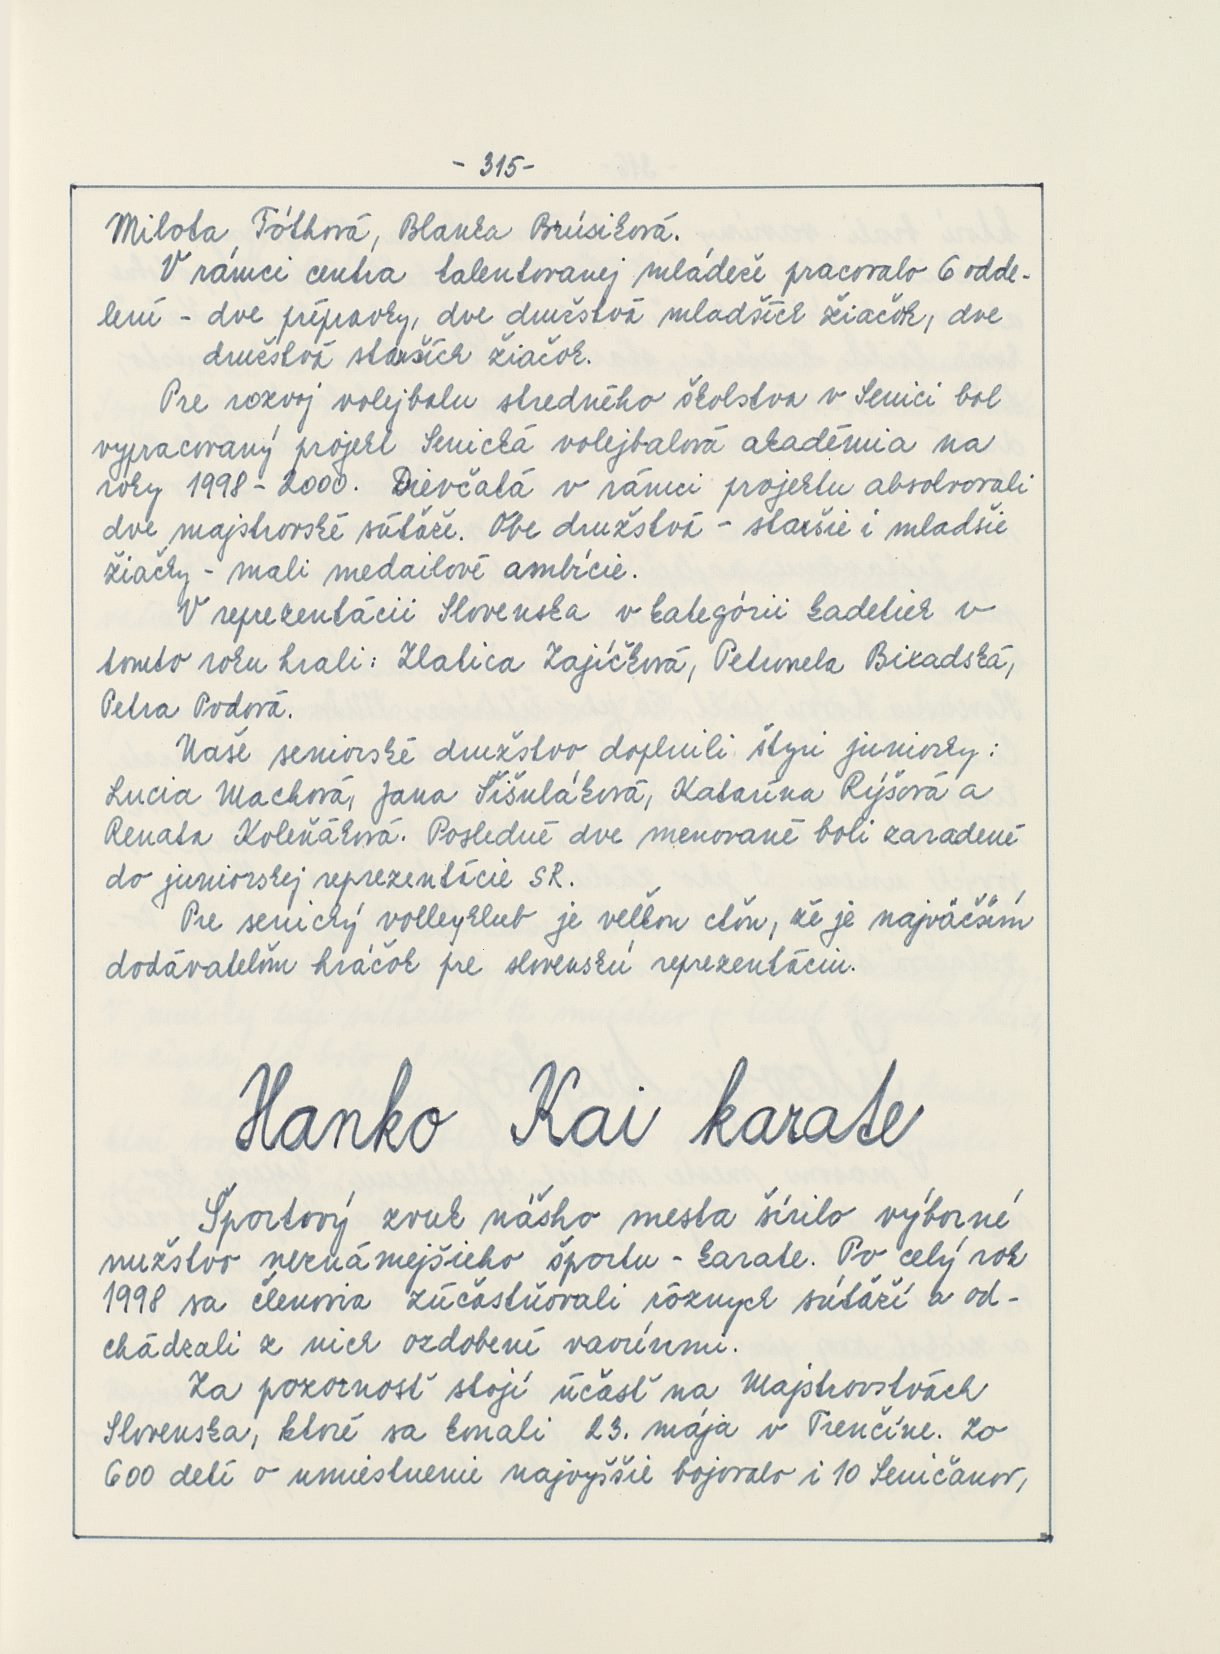 - 315 -
Milota Tóthová, Blanka Brúsiková.
V rámci centra talentovanej mládeže pracovalo 6 odde-
lení - dve prípravky, dve družstvá mladších žiačok, dve
družstvá starších žiačok.
Pre rozvoj volejbalu stredného školstva v Senici bol
vypracovaný projekt Senická volejbalová akadémia na
roky 1998 - 2000. Dievčatá v rámci projektu absolvovali
dve majstrovské súťaže. Obe družstvá - staršie i mladšie
žiačky - mali medailové ambície.
V reprezentácii Slovenska v kategórii kadetiek v
tomto roku hrali: Zlatica Zajíčková, Petronela Bixadská,
Petra Podová.
Naše seniorské družstvo doplnili štyri juniorky:
Lucia Machová, Jana Šišuláková, Katarína Rýšová a
Renata Koleňáková. Posledné dve menované boli zaradené
do juniorskej reprezentácie SR.
Pre senický volleyklub je veľkou cťou, že je najväčším
dodávateľom hráčok pre slovenskú reprezentáciu.
Hanko Kai karate
Športový zvuk nášho mesta šírilo výborné
mužstvo neznámejšieho športu - karate. Po celý rok
1998 sa členovia zúčastňovali rôznych súťaží a od-
chádzali z nich ozdobení vavrínmi.
Za pozornosť stojí účasť na Majstrovstvách
Slovenska, ktoré sa konali 23. mája v Trenčíne. Zo
600 detí o umiestnenie najvyššie bojovalo i 10 Seničanov,